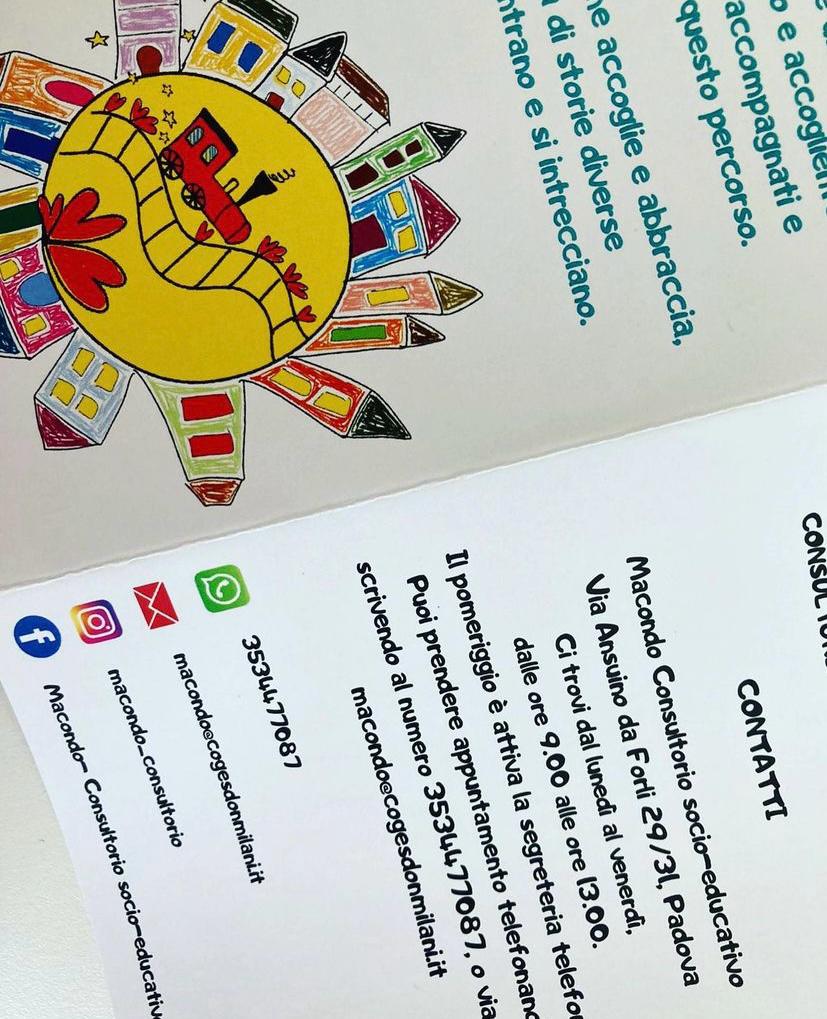 e accoglient
accompagnati e
questo percorso.
accoglie e abbraccia,
di storie diverse
ntrano e si intrecciano.
CONSULTOR
CONTATTI
Macondo Consultorio socio-educativo
Via Ansuino da Forlì 29/31, Padova
Ci trovi dal lunedì al venerdì,
dalle ore 9.00 alle ore 13.00.
Il pomeriggio è attiva la segreteria telefon
Puoi prendere appuntamento telefonand
scrivendo al numero 3534477087, o via
macondo@cogesdonmilani.it
3534477087
macondo@cogesdonmilani.it
macondo_consultorio
Macondo- Consultorio socio-educativo